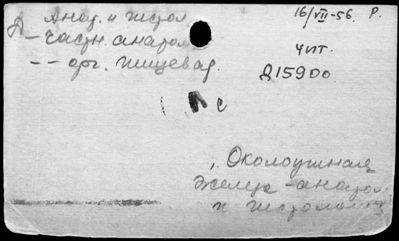 Анат. и гистол
Д – частн. анатом
– – орг. пищевар.
16/VII-56. Р.
чит.
Д15900
с
, Околоушная
железа - анатом
и гистология